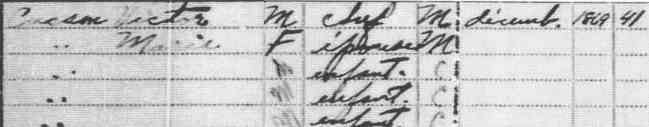 Victor M chef M décemb. 1869 41
" Marie F épouse M
" enfant. C
" enfant. C
enfant. C